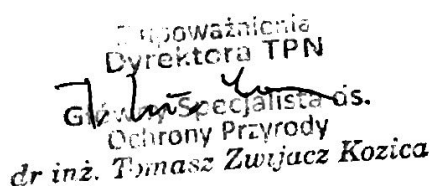 Z upoważnienia
Dyrektora TPN
Główny Specjalista ds.
Ochrony Przyrody
dr inż. Tomasz Zwijacz Kozica